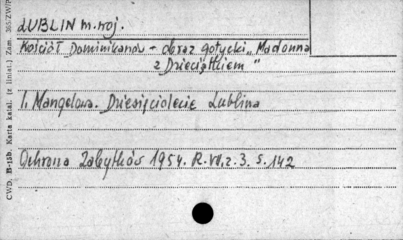 LUBLIN m.woj.
Kościół Dominikanów - obraz gotycki „Madonna
z Dzieciątkiem"
I. Mangelowa. Dziesięciolecie Lublina
Ochrona Zabytków 1954. R.VII, z. 3. s. 142
CWD. B-15b. Karta katal. (z liniat.) Zam. 365/ZW/P